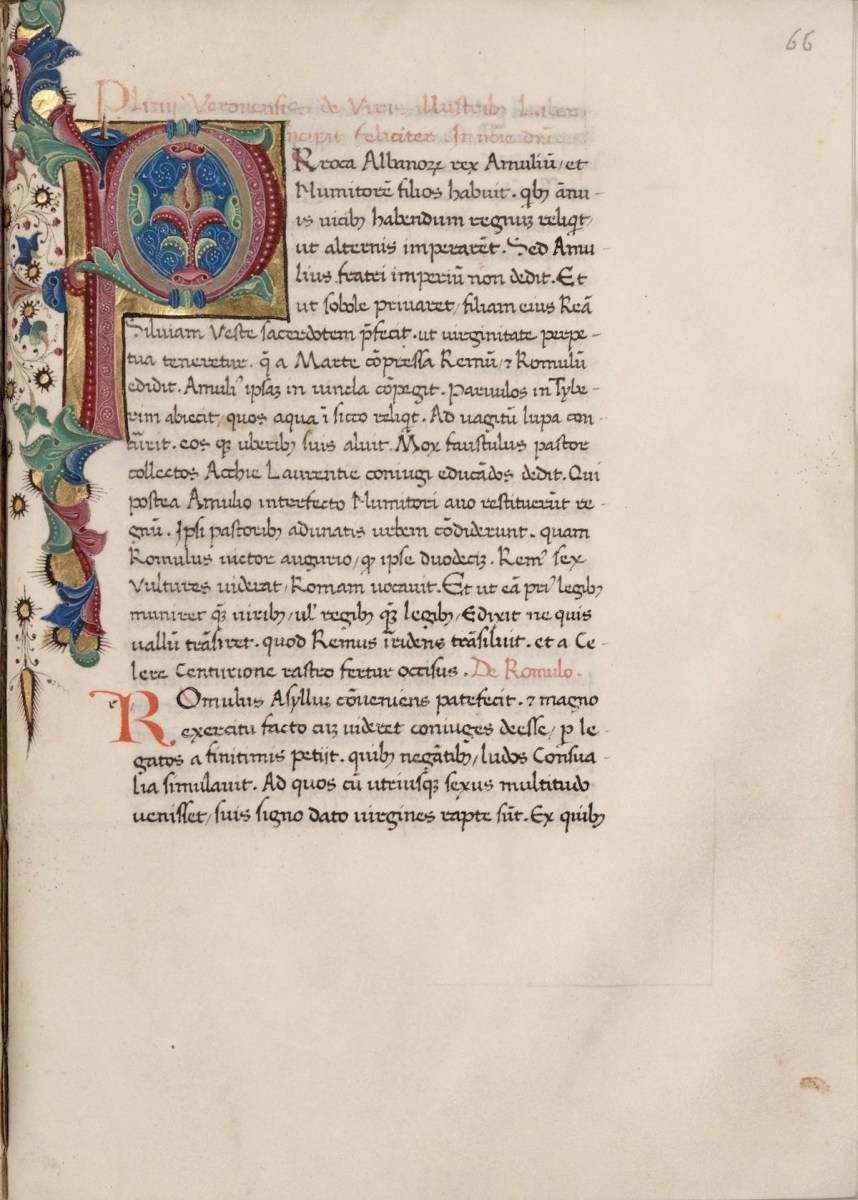 66
Plinij Veronensis de Viris illustribus Liber
incipit feliciter. In noīe dn̄i
PRroca Albanoꝝ rex Amuliū / et
Numitorē filios habuit. qbꝫ ānu-
is uicibꝫ habendum regnuꝫ reliqt /
ut alternis imperarēt. Sed Amu-
lius fratri imperiū non dedit. Et
ut sobole priuaret / filiam eius Reā
Siluiam Veste sacerdotem p̄fecit. ut uirginitate perpe-
tua teneretur. q̄ a Marte cōpressa Remū / ⁊ Romulū
edidit. Amuliꝰ ipsaꝫ in uincla cōpegit. Paruulos in Tybe-
rim abiecit / quos aqua ī sicco reliqt. Ad uagitū lupa con-
currit. eos qꝫ uberibꝫ suis aluit. Mox faustulus pastor
collectos Acchie Laurentie coniugi educādos dedit. Qui
postea Amulio interfecto Numitori auo restituerūt re-
gnū. Ipsi pastoribꝫ adunatis urbem cōdiderunt. quam
Romulus uictor augurio / qꝫ ipse duodeciꝫ. Remꝰ sex
Vultures uiderat / Romam uocauit. Et ut eā priꝰ legibꝫ
muniret qꝫ̄ uiribꝫ / ulꝰ regibꝫ qꝫ̄ legibꝫ / Edixit ne quis
uallū trāsiret. quod Remus īridens trāsiluit. et a Ce-
lere Centurione rastro fertur occisus. De Romulo.
r ROmulus Asylluꝫ cōueniens patefecit. ⁊ magno
exercitu facto cuꝫ uideret coniuges deesse / ꝑ le-
gatos a finitimis petijt. quibꝫ negātibꝫ / ludos Consua-
lia simulauit. Ad quos cū utriusqꝫ sexus multitudo
uenisset / suis signo dato uirgines rapte sūt. Ex quibꝫ